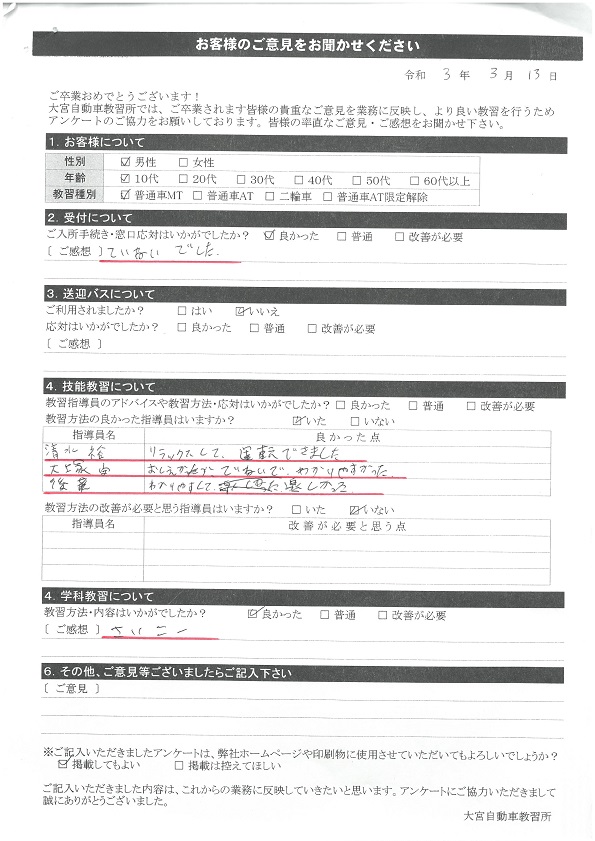 お客様のご意見をお聞かせください
令和 3 年 3 月 13 日
ご卒業おめでとうございます!
大宮自動車教習所では、ご卒業されます皆様の貴重なご意見を業務に反映し、より良い教習を行うため
アンケートのご協力をお願いしております。皆様の率直なご意見・ご感想をお聞かせ下さい。
1. お客様について
性別 ☑ 男性 □ 女性
年齢 ☑ 10代 □ 20代 □ 30代 □ 40代 □ 50代 □ 60代以上
教習種別 ☑ 普通車MT □ 普通車AT □ 二輪車 □ 普通車AT限定解除
2. 受付について
ご入所手続き・窓口応対はいかがでしたか? ☑ 良かった □ 普通 □ 改善が必要
[ ご感想 ] ていねいでした。
3. 送迎バスについて
ご利用されましたか? □ はい ☑ いいえ
応対はいかがでしたか? □ 良かった □ 普通 □ 改善が必要
[ ご感想 ]
4. 技能教習について
教習指導員のアドバイスや教習方法・応対はいかがでしたか? □ 良かった □ 普通 □ 改善が必要
教習方法の良かった指導員はいますか? ☑ いた □ いない
指導員名 良かった点
清水 リラックスして、運転できました
大塚 おしえ方がていねいで、わかりやすかった
後藤 わかりやすくて、楽しかった
教習方法の改善が必要と思う指導員はいますか? □ いた ☑ いない
指導員名 改善が必要と思う点
4. 学科教習について
教習方法・内容はいかがでしたか? ☑ 良かった □ 普通 □ 改善が必要
[ ご感想 ] さいこー
6. その他、ご意見等ございましたらご記入下さい
[ ご意見 ]
※ご記入いただきましたアンケートは、弊社ホームページや印刷物に使用させていただいてもよろしいでしょうか?
☑ 掲載してもよい □ 掲載は控えてほしい
ご記入いただきました内容は、これからの業務に反映していきたいと思います。アンケートにご協力いただきまして
誠にありがとうございました。
大宮自動車教習所